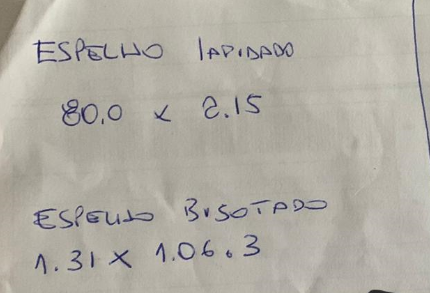 ESPELHO LAPIDADO
80.0 x 2.15
ESPELHO BISOTADO
1.31 x 1.06.3